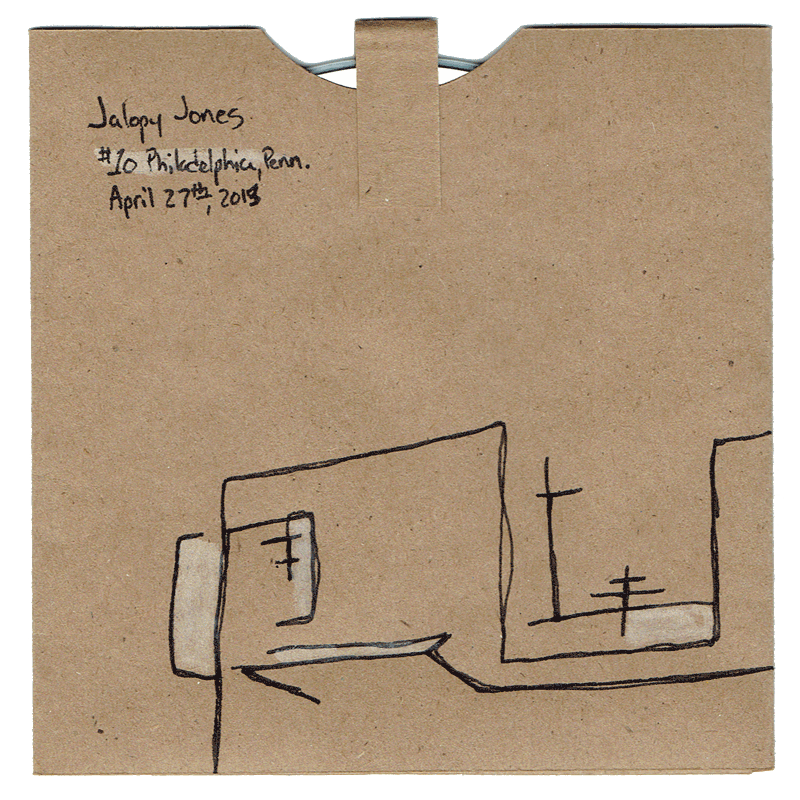 Jalopy Jones
#10 Philadelphia, Penn.
April 27th, 2013